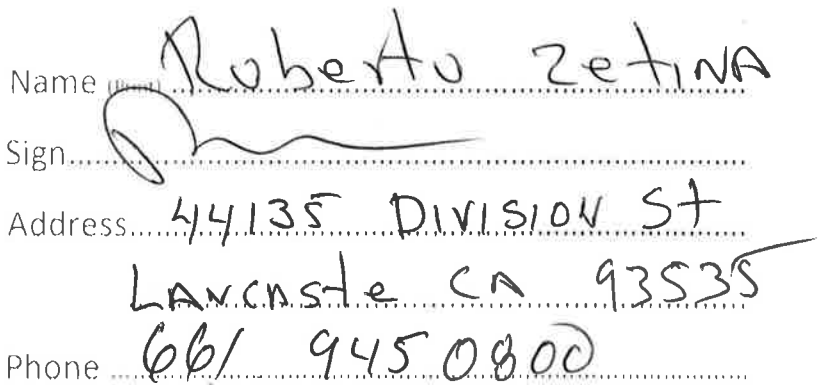 Name Roberto Zetina
Sign
Address 44135 Division St
Lancaste CA 93535
Phone 661 945 0800